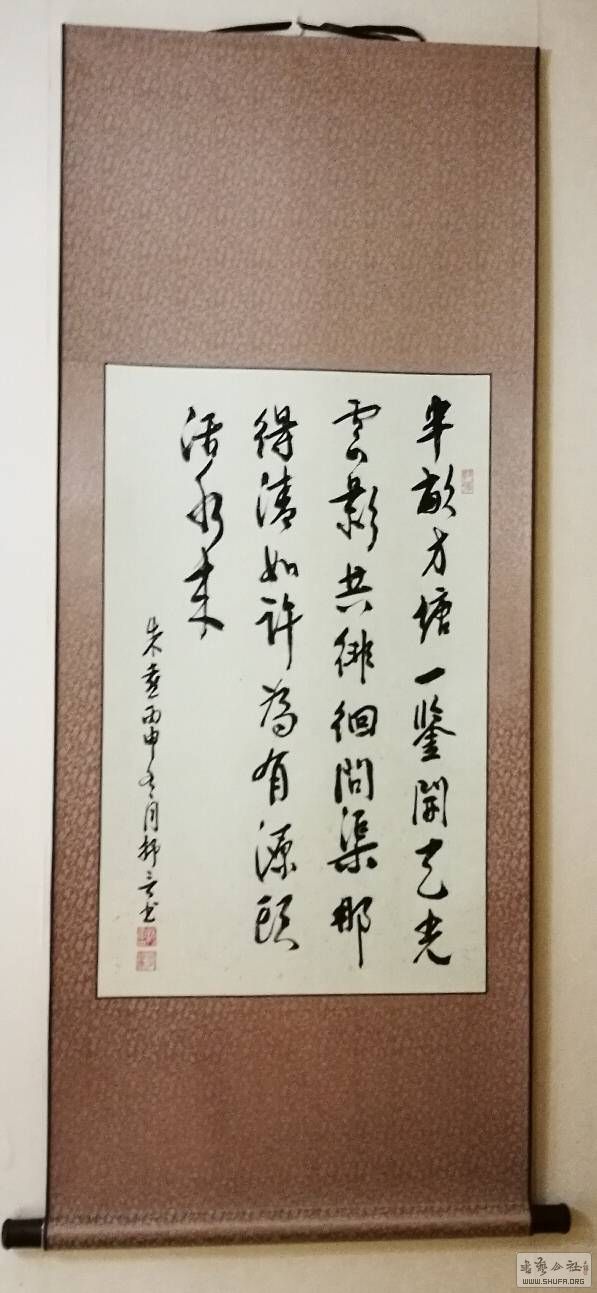 半畝方塘一鉴開天光
雲影共徘徊問渠那
得清如許為有源頭
活水来
朱熹丙申冬月 書
書藝公社
WWW.SHUFA.ORG